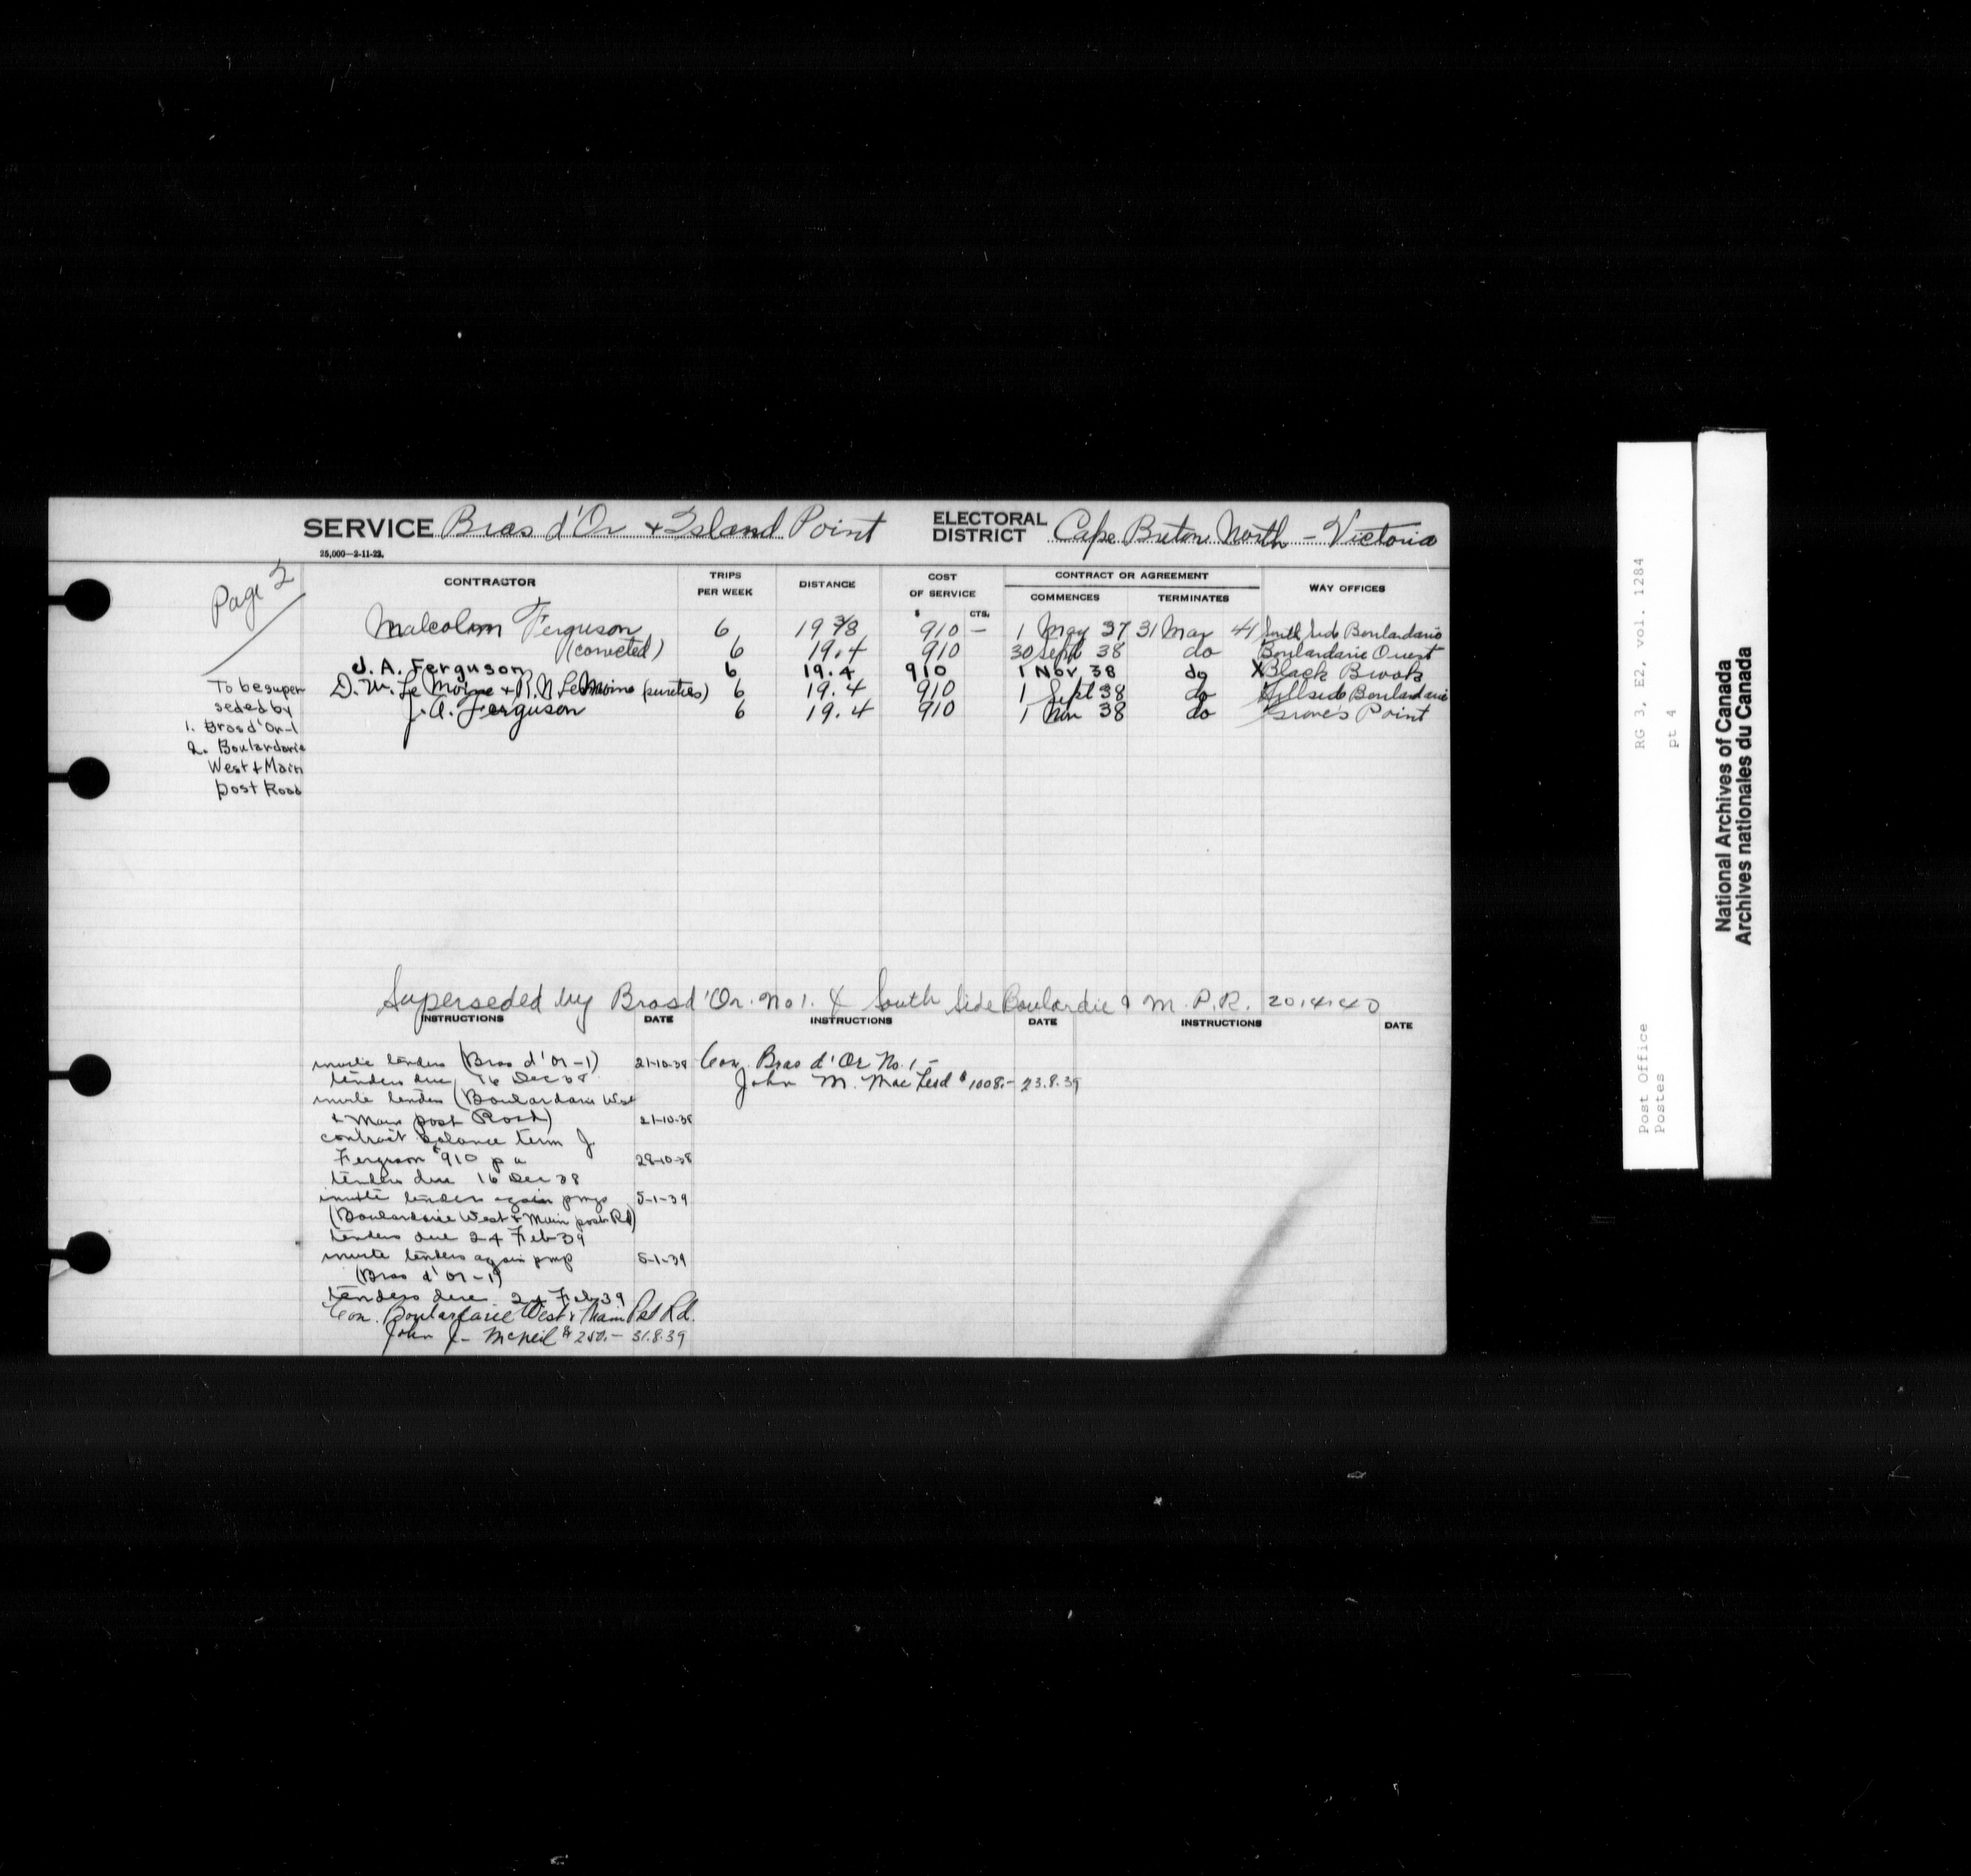 SERVICE Bras d'Or & Island Point ELECTORAL DISTRICT Cape Breton North - Victoria
25,000—2-11-22.
Page 2
CONTRACTOR TRIPS PER WEEK DISTANCE COST OF SERVICE CONTRACT OR AGREEMENT WAY OFFICES
COMMENCES TERMINATES
$ CTS.
Malcolm Ferguson 6 19 3/8 910 — 1 May 37 31 Mar 41 South Side Boulardarie
6 19.4 910 30 Sept 38 do Boulardarie Ouest
J. A. Ferguson 6 19.4 910 1 Nov 38 do X Black Brook
D. W. Le Moine & R. N. Le Moine (sureties) 6 19.4 910 1 Sept 38 do Hillside Boulardarie
J. A. Ferguson 6 19.4 910 1 Nov 38 do Grove's Point
To be super
seded by
1. Bras d'Or-1
2. Boulardarie
West & Main
post Road
Superseded by Bras d'Or. No 1. & South Side Boulardie & M. P. R. 20.4.40
INSTRUCTIONS DATE INSTRUCTIONS DATE INSTRUCTIONS DATE
invite tenders (Bras d'Or-1) 21-10-38
tenders due 16 Dec 38
invite tenders (Boulardarie West
& Main post Road) 21-10-38
contract balance term J.
Ferguson $910 p a 28-10-38
tenders due 16 Dec 38
invite tenders again 5-1-39
(Boulardarie West & Main post Rd)
tenders due 24 Feb 39
invite tenders again 5-1-39
(Bras d'Or-1)
tenders due 24 Feb 39
Con. Boulardarie West & Main Pst Rd.
John J. McNeil $250.— 31.8.39
Con. Bras d'Or No. 1—
John M. Mac Leod $1008.— 23.8.39
RG 3, E2, vol. 1284
pt 4
Post Office
Postes
National Archives of Canada
Archives nationales du Canada